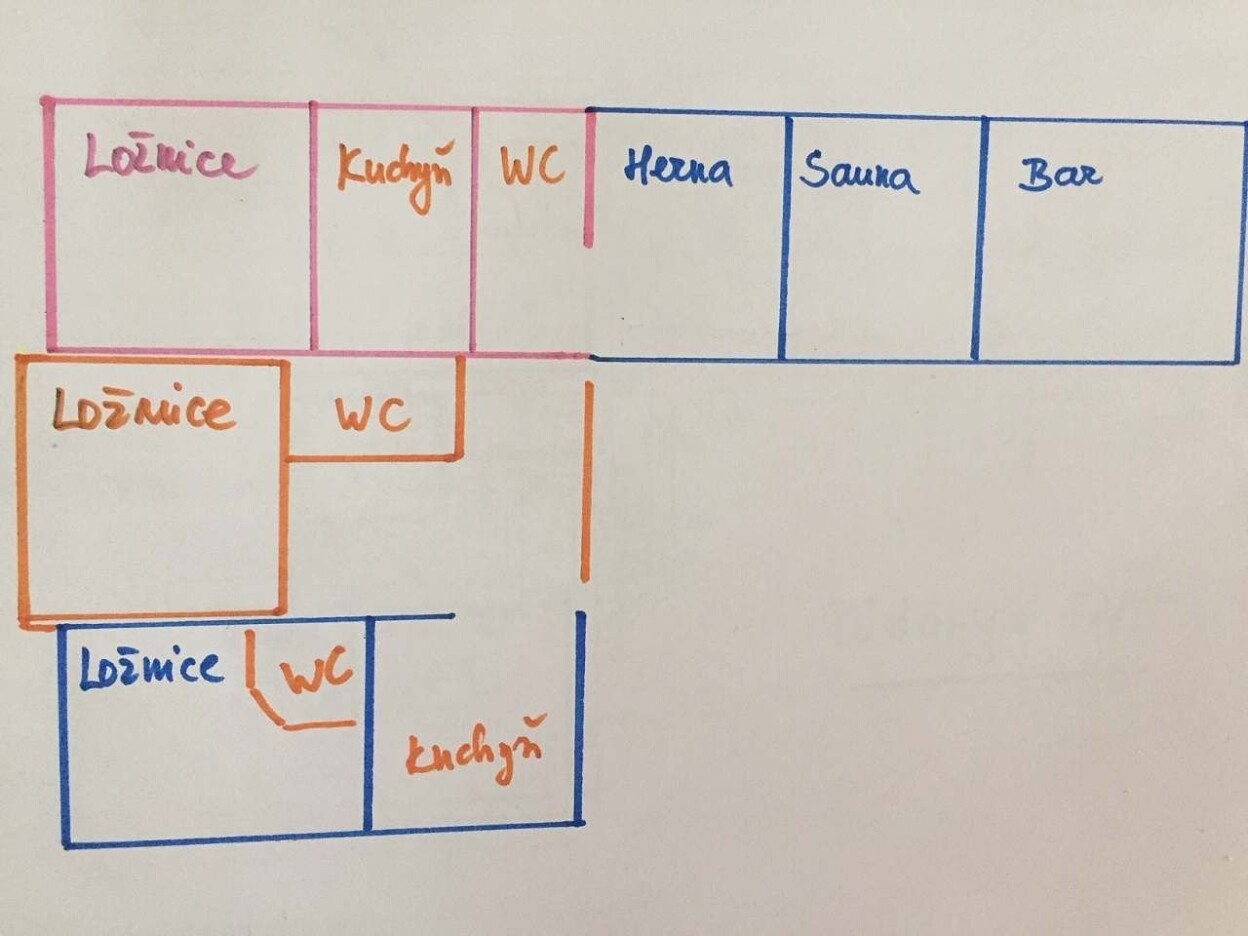 Ložnice Kuchyň WC Herna Sauna Bar
Ložnice WC
Ložnice WC
Kuchyň